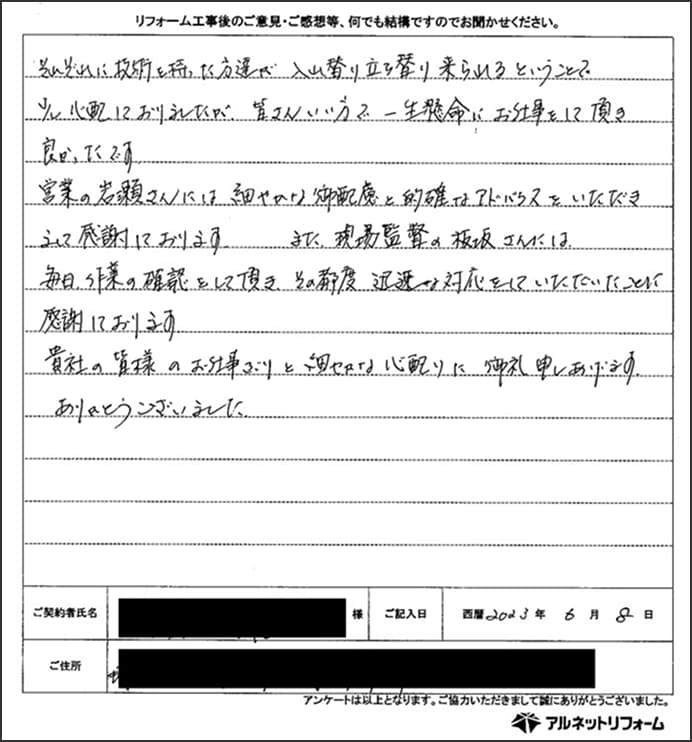 リフォーム工事後のご意見・ご感想等、何でも結構ですのでお聞かせください。
それぞれに技術を持った方達が 入れ替り立ち替り 来られるということで
少し心配しておりましたが、皆さんいい方で 一生懸命に お仕事をして頂き
良かったです
営業の岩瀬さんには 細やかな御配慮と的確なアドバイスをいただき
まして感謝しております また、現場監督の板坂さんには
毎日、作業の確認をして頂き その都度 迅速な対応をしていただいたことに
感謝しております
貴社の皆様のお仕事ぶりと細やかな心配りに 御礼申しあげます。
ありがとうございました。
ご契約者氏名 様 ご記入日 西暦2023年 6月 8日
ご住所
アンケートは以上となります。ご協力いただきまして誠にありがとうございました。
アルネットリフォーム